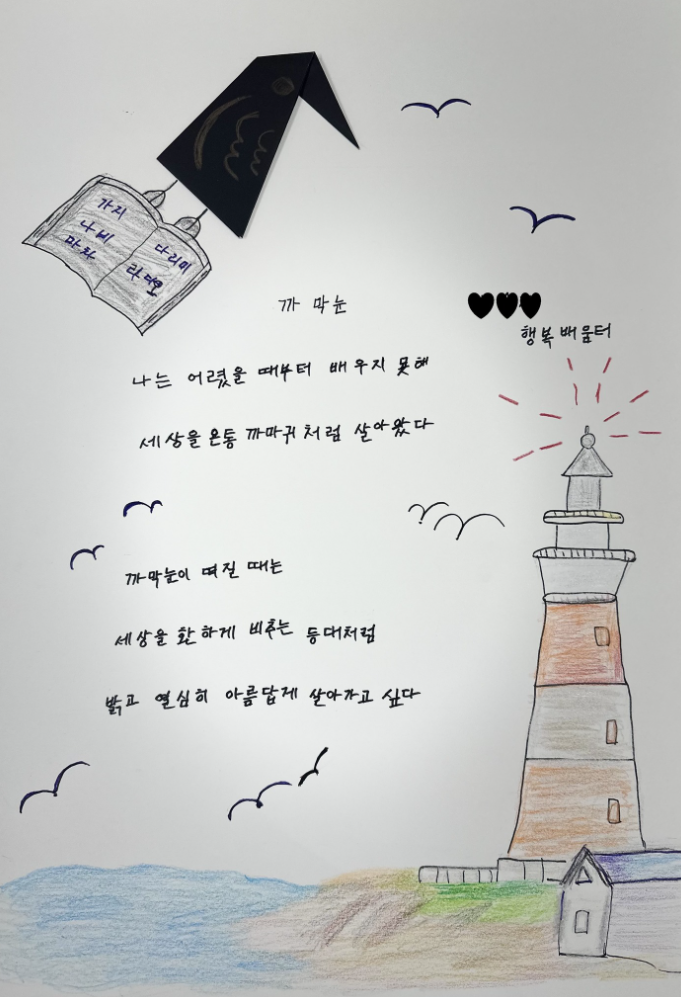 가지
나비
마차
다리미
라디오
까막눈
행복배움터
나는 어렸을 때부터 배우지 못해
세상을 온통 까마귀처럼 살아왔다
까막눈이 떠질 때는
세상을 환하게 비추는 등대처럼
밝고 열심히 아름답게 살아가고 싶다